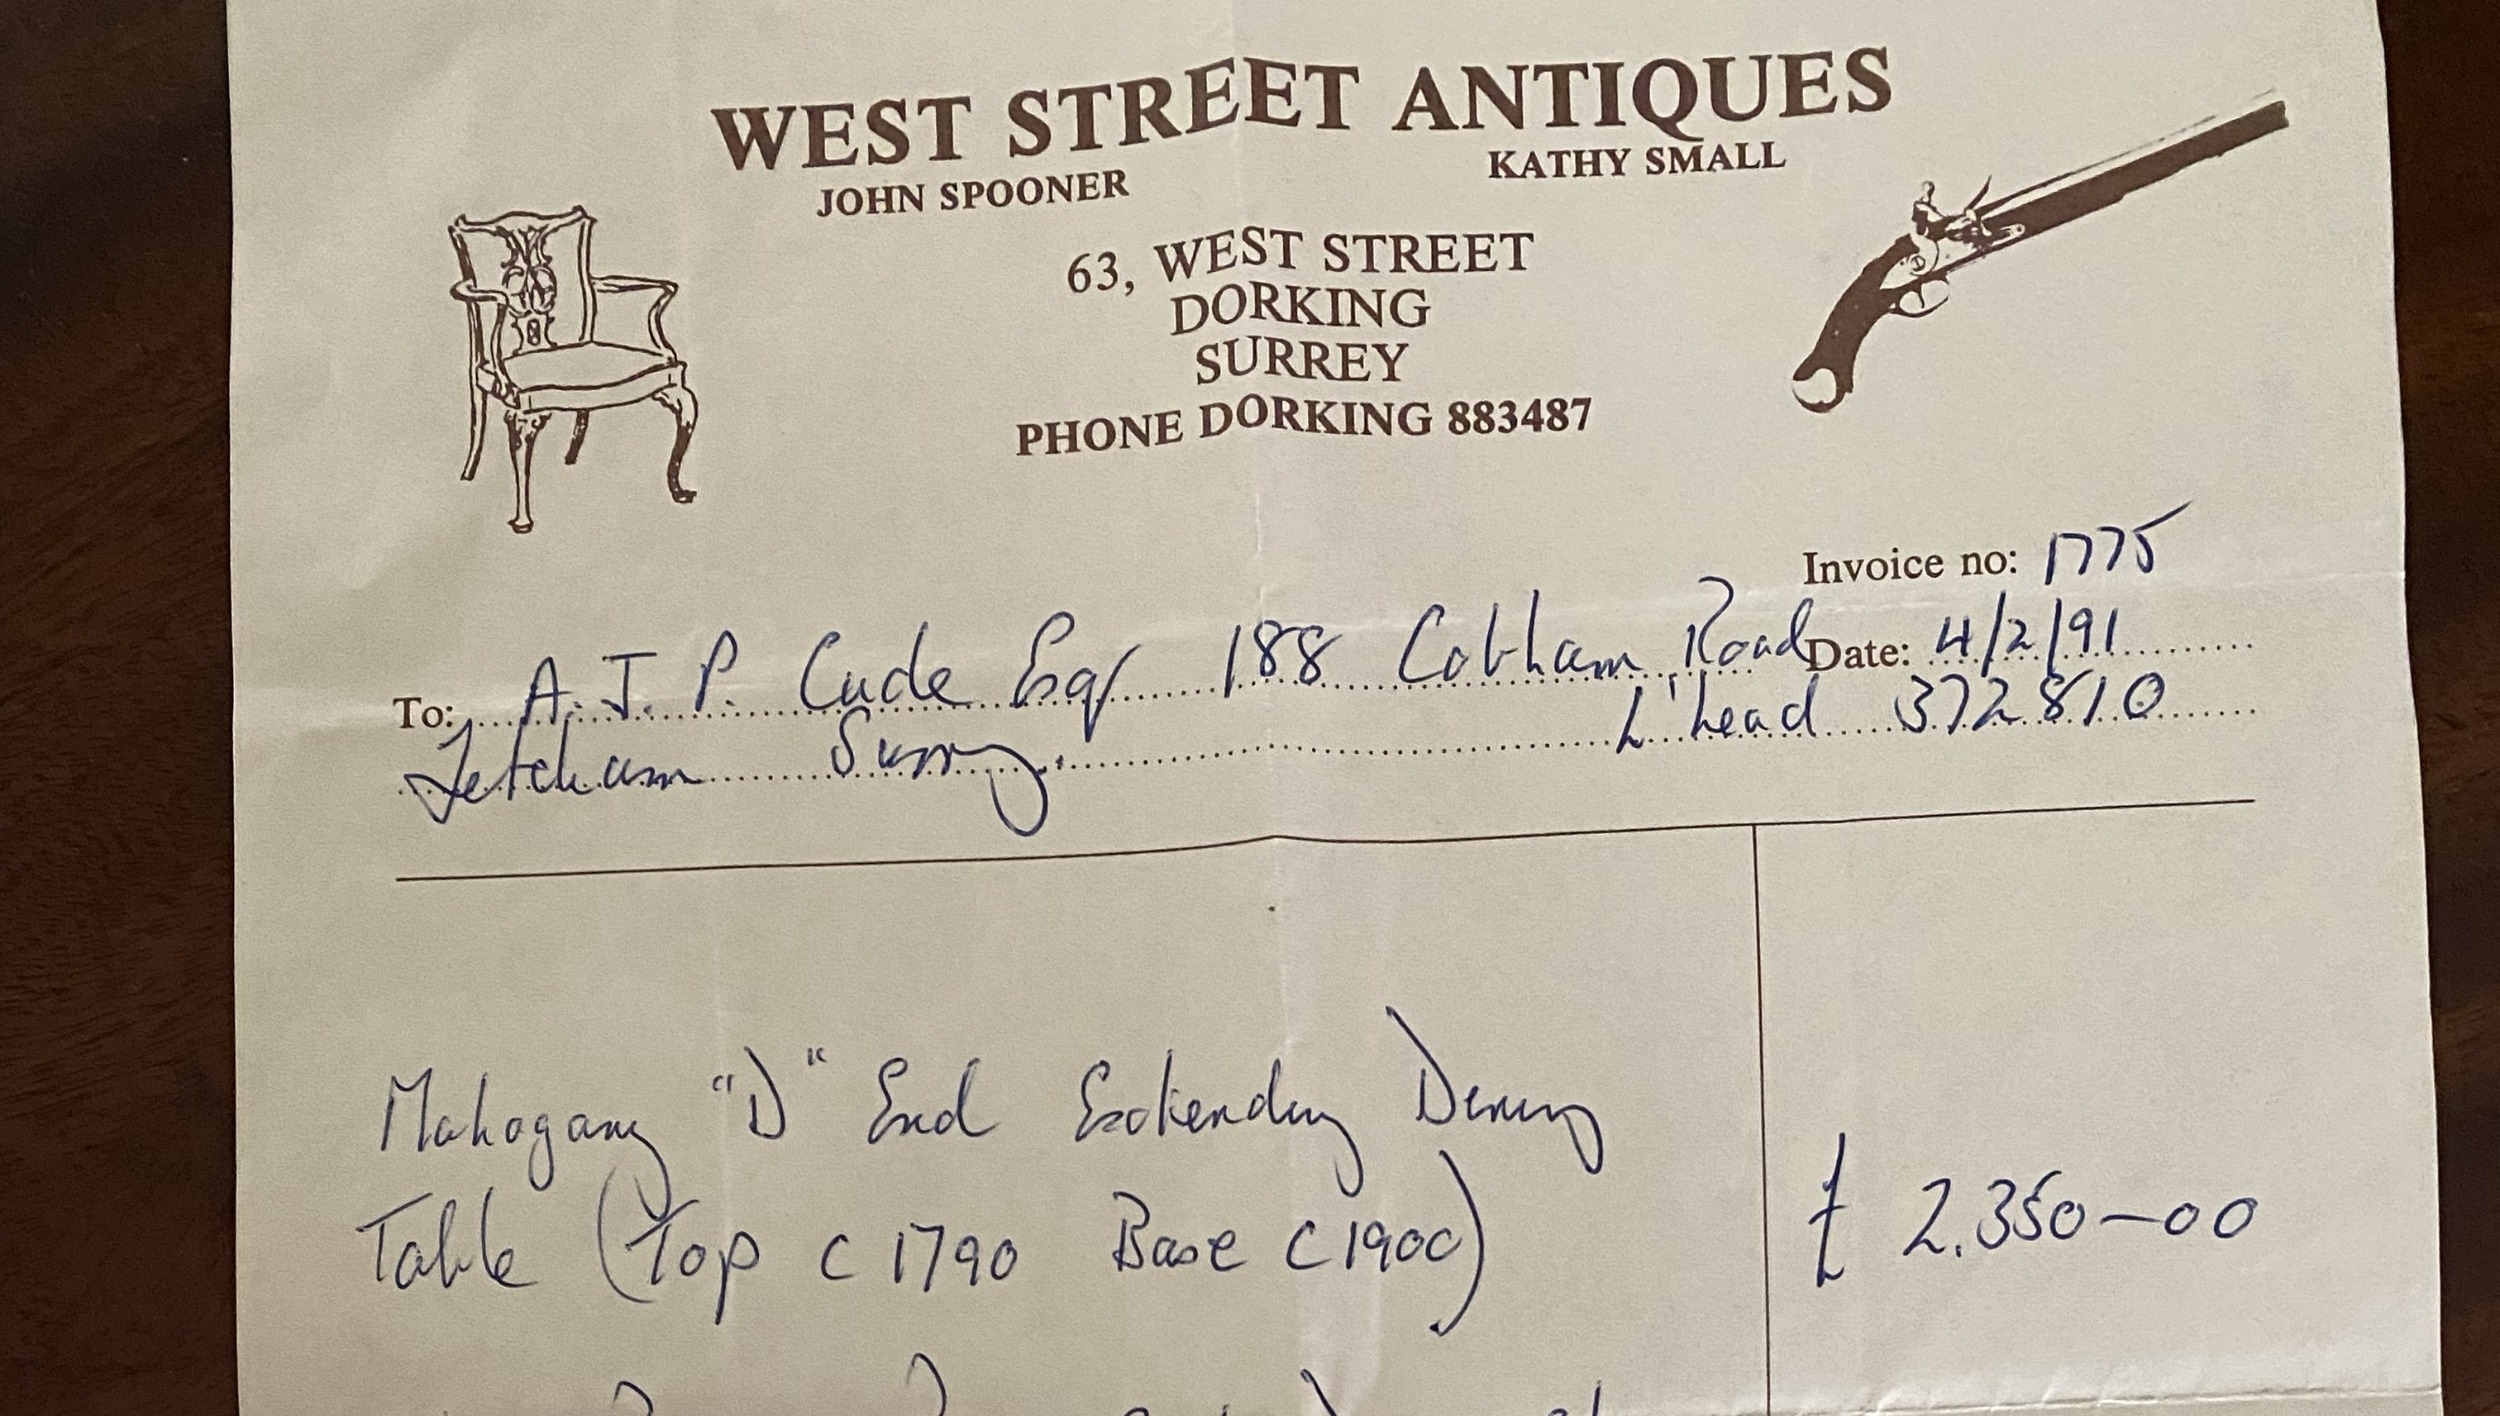 WEST STREET ANTIQUES
JOHN SPOONER KATHY SMALL
63, WEST STREET
DORKING
SURREY
PHONE DORKING 883487
Invoice no: 1775
To: A. J. P. Cude Esq 188 Cobham Road Date: 4/2/91
Fetcham Surrey. L'head 372810
Mahogany "D" End Extending Dining
Table (Top c 1790 Base c 1900) £ 2.350-00